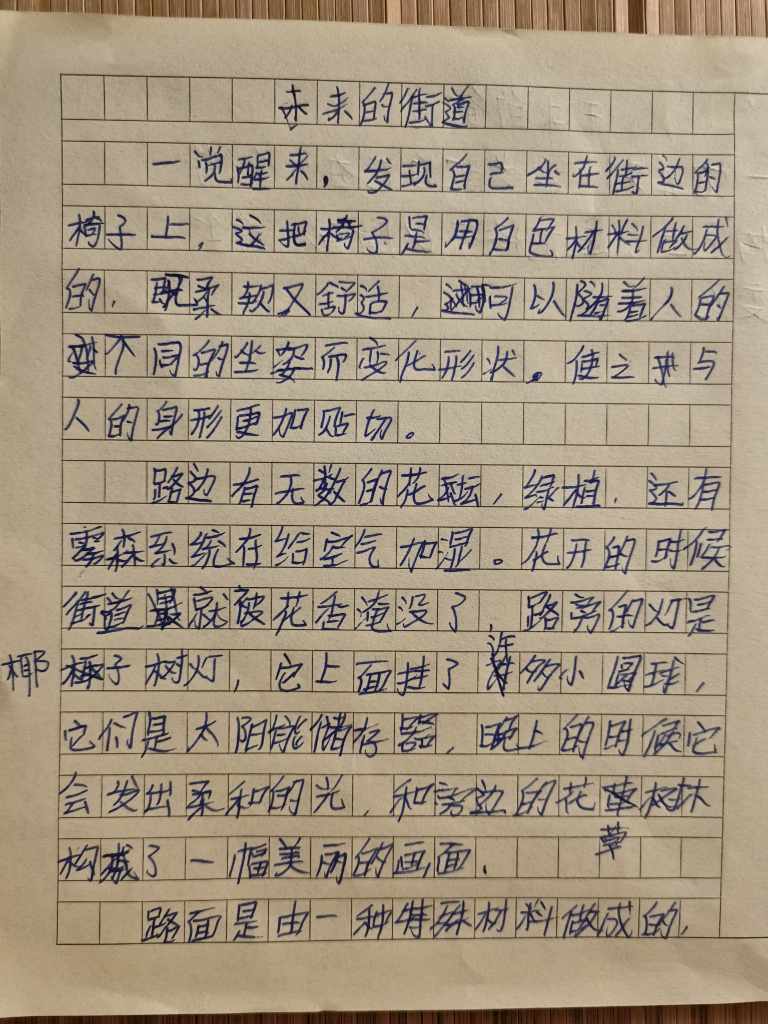 未来的街道
一觉醒来，发现自己坐在街边的
椅子上，这把椅子是用白色材料做成
的，既柔软又舒适，可以随着人的
不同的坐姿而变化形状。使之与
人的身形更加贴切。
路边有无数的花坛，绿植，还有
雾森系统在给空气加湿。花开的时候
街道就被花香淹没了，路旁的灯是
椰子树灯，它上面挂了许多小圆球，
它们是太阳能储存器，晚上的时候它
会发出柔和的光，和旁边的花草树林
构成了一幅美丽的画面。
路面是由一种特殊材料做成的，